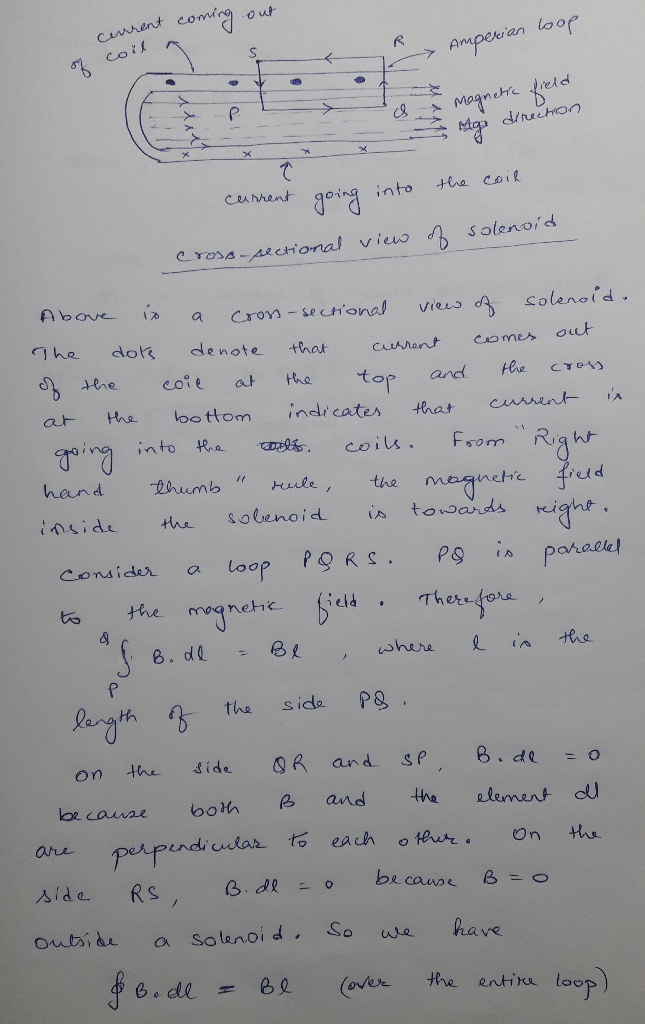 current coming out
of coil
S
R
Amperian loop
P
Q
Magnetic field
direction
current going into the coil
cross-sectional view of solenoid
Above is a cross-sectional view of solenoid.
The dots denote that current comes out
of the coil at the top and the cross
at the bottom indicates that current is
going into the coils. From "Right
hand thumb" rule, the magnetic field
inside the solenoid is towards right.
Consider a loop PQRS. PQ is parallel
to the magnetic field. Therefore,
Q
∫ B.dl = Bl, where l is the
P
length of the side PQ.
On the side QR and SP, B.dl = 0
because both B and the element dl
are perpendicular to each other. On the
side RS, B.dl = 0 because B = 0
outside a solenoid. So we have
∮ B.dl = Bl (over the entire loop)